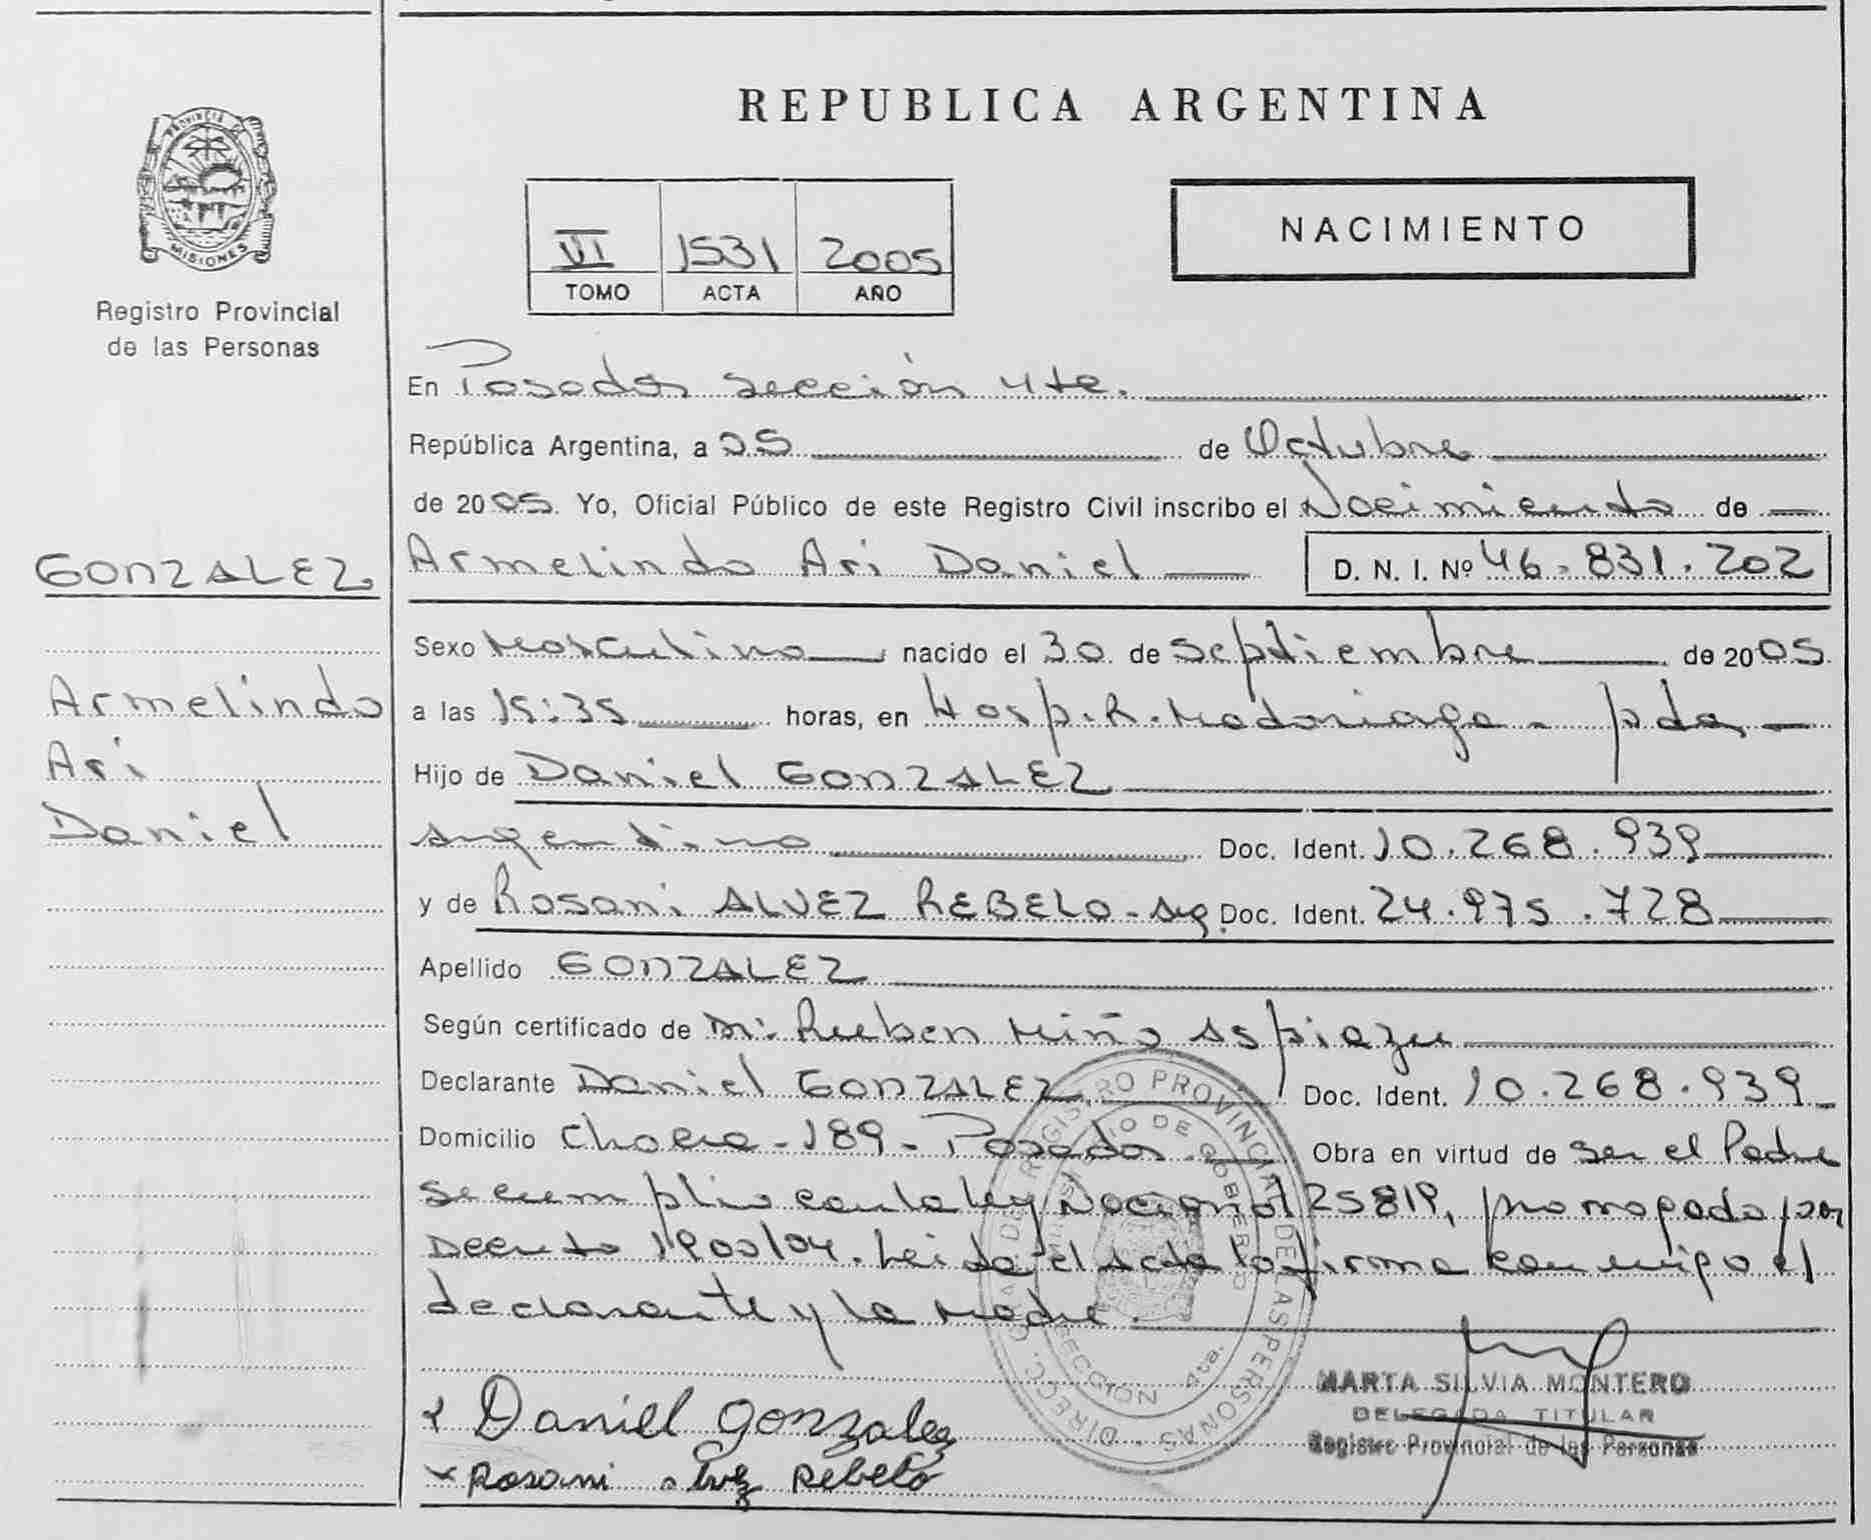 REPUBLICA ARGENTINA
PROVINCIA DE
MISIONES
Registro Provincial
de las Personas
NACIMIENTO
VI 1531 2005
TOMO ACTA AÑO
En Posadas sección 4ta.
República Argentina, a 05 de Octubre
de 2005. Yo, Oficial Público de este Registro Civil inscribo el Nacimiento de
GONZALEZ
Armelindo Ari Daniel D. N. I. Nº 46.831.202
Sexo Masculino nacido el 30 de septiembre de 2005
Armelindo
a las 15:35 horas, en Hosp. R. Madariaga - pdas
Ari
Hijo de Daniel GONZALEZ
Daniel
argentino Doc. Ident. 10.268.939
y de Rosani ALVEZ REBELO - arg. Doc. Ident. 24.975.728
Apellido GONZALEZ
Según certificado de Dr. Ruben Miño Aspiazu
Declarante Daniel GONZALEZ Doc. Ident. 10.268.939
Domicilio Chacra - 189 - Posadas Obra en virtud de ser el Padre
se cumplio con la ley Nacional 25819, promogada por
Decreto 1900/04. Leida el acta la firma conmigo el
declarante y la madre.
DIRECC. GRAL. DEL REGISTRO PROVINCIAL DE LAS PERSONAS
MINISTERIO DE GOBIERNO
SECCION 4ta.
MARTA SILVIA MONTERO
DELEGADA TITULAR
Registro Provincial de las Personas
x Daniel Gonzalez
x Rosani Alvez Rebelo